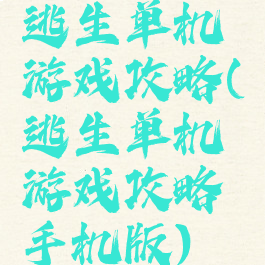 逃生单机
游戏攻略(
逃生单机
游戏攻略
手机版)